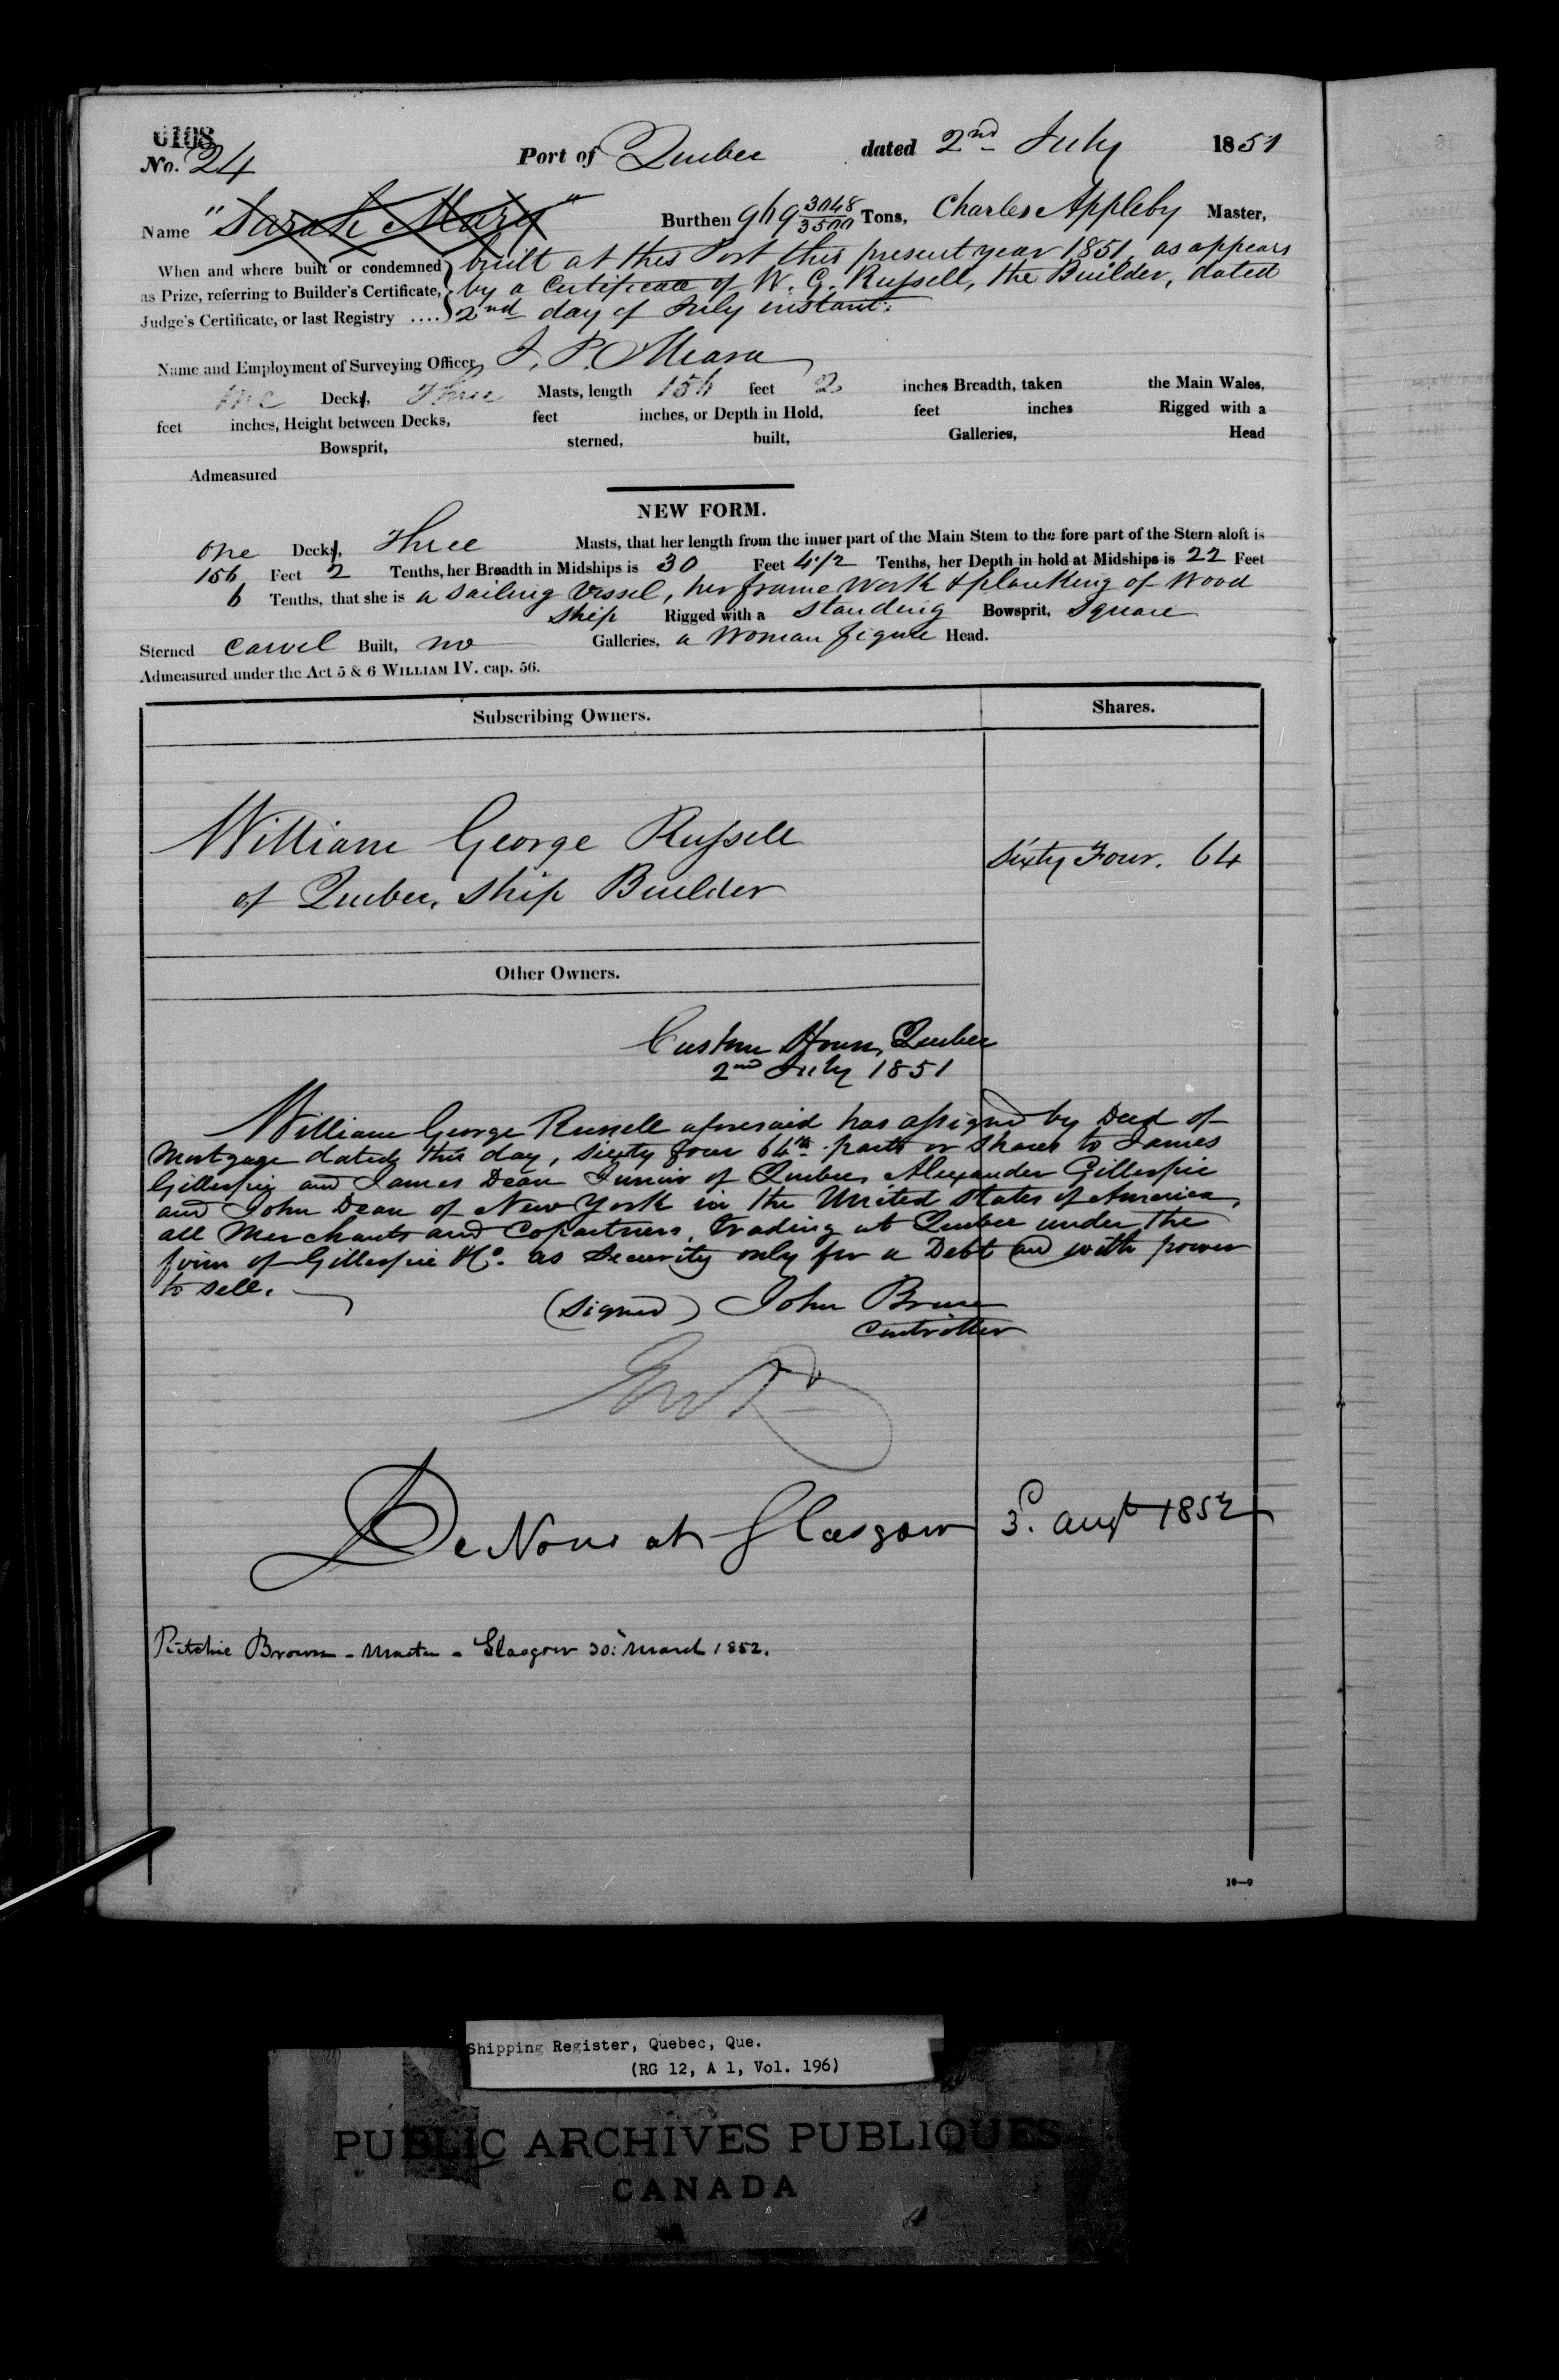 0108
No. 24 Port of Quebec dated 2nd July 1851
Name "Sarah Mary" Burthen 969 3048/3500 Tons, Charles Appleby Master,
When and where built or condemned as Prize, referring to Builder's Certificate, Judge's Certificate, or last Registry ....
built at this Port this present year 1851, as appears
by a Certificate of W. G. Russell, the Builder, dated
2nd day of July instant.
Name and Employment of Surveying Officer, J. P. OMeara
one Decks, Three Masts, length 156 feet 2 inches Breadth, taken the Main Wales,
feet inches, Height between Decks, feet inches, or Depth in Hold, feet inches Rigged with a
Bowsprit, sterned, built, Galleries, Head
Admeasured
NEW FORM.
one Decks, Three Masts, that her length from the inner part of the Main Stem to the fore part of the Stern aloft is
156 Feet 2 Tenths, her Breadth in Midships is 30 Feet 4 1/2 Tenths, her Depth in hold at Midships is 22 Feet
6 Tenths, that she is a sailing Vessel, her frame work & planking of Wood
ship Rigged with a standing Bowsprit, square
Sterned carvel Built, no Galleries, a Woman figure Head.
Admeasured under the Act 5 & 6 WILLIAM IV. cap. 56.
Subscribing Owners. Shares.
William George Russell
of Quebec, Ship Builder
Sixty Four. 64
Other Owners.
Custom House, Quebec
2nd July 1851
William George Russell aforesaid has assigned by Deed of
Mortgage dated this day, sixty four 64th parts or shares to James
Gillespie and James Dean Junior of Quebec, Alexander Gillespie
and John Dean of New York in the United States of America,
all Merchants and Copartners, trading at Quebec under the
firm of Gillespie & Co. as Security only for a Debt and with power
to sell.
(Signed) John Bruce
Controller
De Novo at Glasgow 3d. augt 1852
Ritchie Brown - Master - Glasgow 30: March 1852.
10—9
Shipping Register, Quebec, Que.
(RG 12, A 1, Vol. 196)
PUBLIC ARCHIVES PUBLIQUES
CANADA